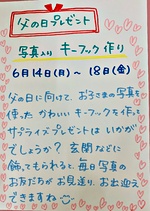 父の日プレゼント
写真入り キーフック作り
6月14日(月)～18日(金)
父の日に向けて、お子さまの写真を
使った かわいい キーフックを作って
サプライズプレゼントは いかが
でしょうか? 玄関などに
飾ってもらえると、毎日写真の
お友だちが お見送り、お出迎え
できますね